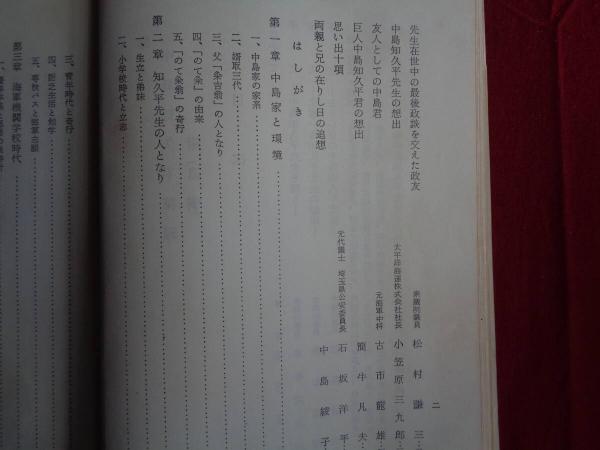 先生在世中の最後政談を交えた政友 衆議院議員 松村謙三
中島知久平先生の想出 太平洋海運株式会社社長 小笠原三九郎
友人としての中島君 元海軍中将 古市龍雄
巨人中島知久平君の想出 簡牛凡夫
思い出十項 元代議士 埼玉県公安委員長 石坂洋平
両親と兄の在りし日の追想 中島綾子
はしがき
第一章 中島家と環境
一、中島家の家系
二、婿取三代
三、父「粂吉翁」の人となり
四、「のて粂」の由来
五、「のて粂翁」の奇行
第二章 知久平先生の人となり
一、生立と弟妹
二、小学校時代と立志
三、青年時代と奇行
四、
五、専検パスと
第三章 海軍機関学校時代
一、
二